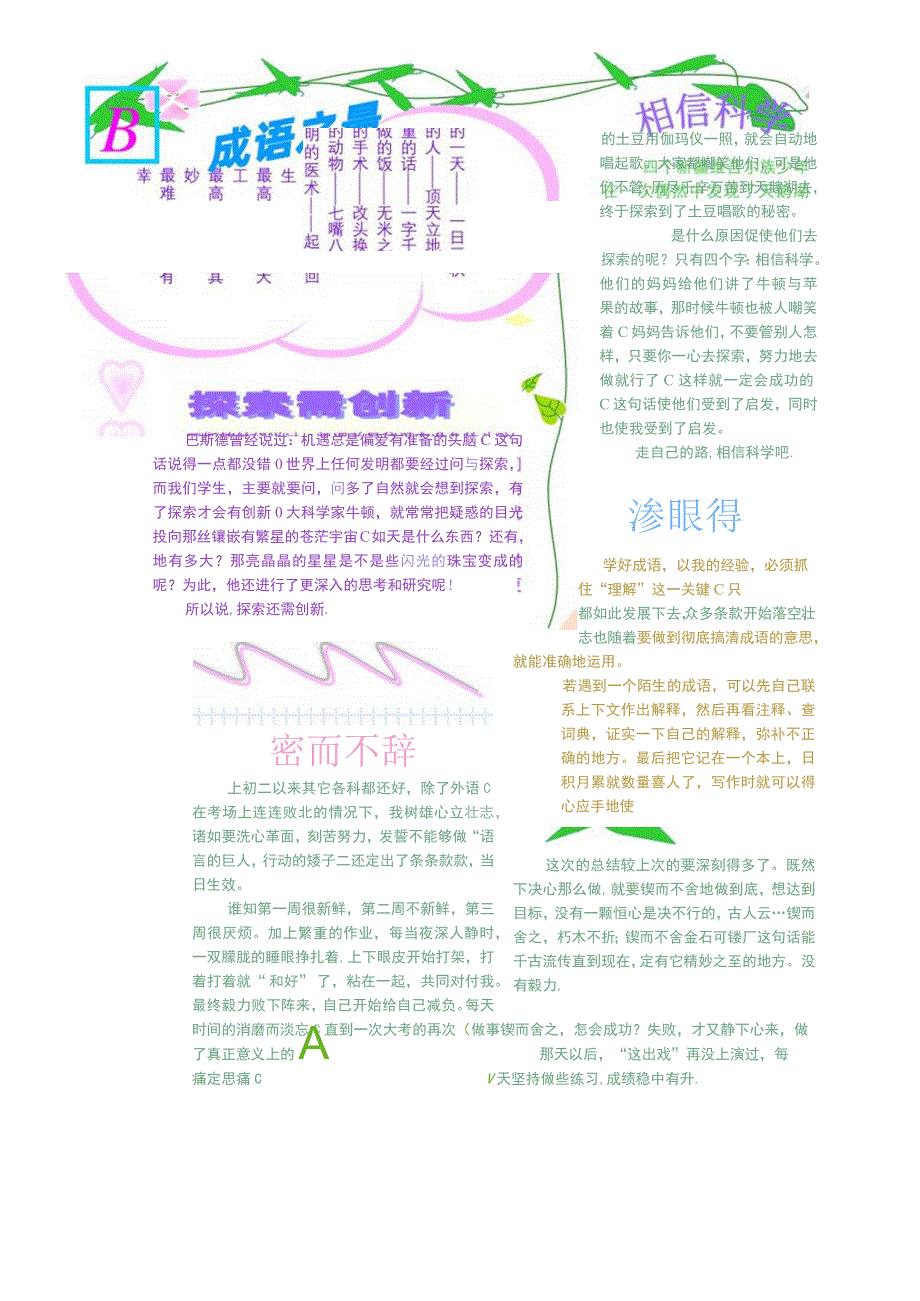 B
成语之最
的一天——一日三秋
的人——顶天立地
重的话——一字千
做的饭——无米之
的手术——改头换
的动物——七嘴八
明的医术——起
回
生
最高
大
工
最高
真
妙
最难
有
幸
相信科学
四个新疆维吾尔族少年
在一次偶然中发现了天鹅湖
的土豆用伽玛仪一照，就会自动地
唱起歌。大家都嘲笑他们，可是他
们不管，历尽千辛万苦到天鹅湖去，
终于探索到了土豆唱歌的秘密。
是什么原因促使他们去
探索的呢？只有四个字：相信科学。
他们的妈妈给他们讲了牛顿与苹
果的故事，那时候牛顿也被人嘲笑
着C妈妈告诉他们，不要管别人怎
样，只要你一心去探索，努力地去
做就行了C这样就一定会成功的
C这句话使他们受到了启发，同时
也使我受到了启发。
走自己的路,相信科学吧.
探索需创新
巴斯德曾经说过：机遇总是偏爱有准备的头脑C这句
话说得一点都没错0世界上任何发明都要经过问与探索，
而我们学生，主要就要问，问多了自然就会想到探索，有
了探索才会有创新0大科学家牛顿，就常常把疑惑的目光
投向那丝镶嵌有繁星的苍茫宇宙C如天是什么东西？还有，
地有多大？那亮晶晶的星星是不是些闪光的珠宝变成的
呢？为此，他还进行了更深入的思考和研究呢！
所以说,探索还需创新.
渗眼得
学好成语，以我的经验，必须抓
住“理解”这一关键C只
都如此发展下去,众多条款开始落空,壮
志也随着要做到彻底搞清成语的意思，
就能准确地运用。
若遇到一个陌生的成语，可以先自己联
系上下文作出解释，然后再看注释、查
词典，证实一下自己的解释，弥补不正
确的地方。最后把它记在一个本上，日
积月累就数量喜人了，写作时就可以得
心应手地使
密而不辞
上初二以来其它各科都还好，除了外语C
在考场上连连败北的情况下，我树雄心立壮志，
诸如要洗心革面，刻苦努力，发誓不能够做“语
言的巨人，行动的矮子二还定出了条条款款，当
日生效。
谁知第一周很新鲜，第二周不新鲜，第三
周很厌烦。加上繁重的作业，每当夜深人静时，
一双朦胧的睡眼挣扎着,上下眼皮开始打架，打
着打着就“和好”了，粘在一起，共同对付我。
最终毅力败下阵来，自己开始给自己减负。每天
这次的总结较上次的要深刻得多了。既然
下决心那么做,就要锲而不舍地做到底，想达到
目标，没有一颗恒心是决不行的，古人云…锲而
舍之，朽木不折；锲而不舍金石可镂厂这句话能
千古流传直到现在，定有它精妙之至的地方。没
有毅力,
时间的消磨而淡忘C直到一次大考的再次（做事锲而舍之，怎会成功？失败，才又静下心来，做
了真正意义上的A 那天以后，“这出戏”再没上演过，每
痛定思痛C V天坚持做些练习,成绩稳中有升.